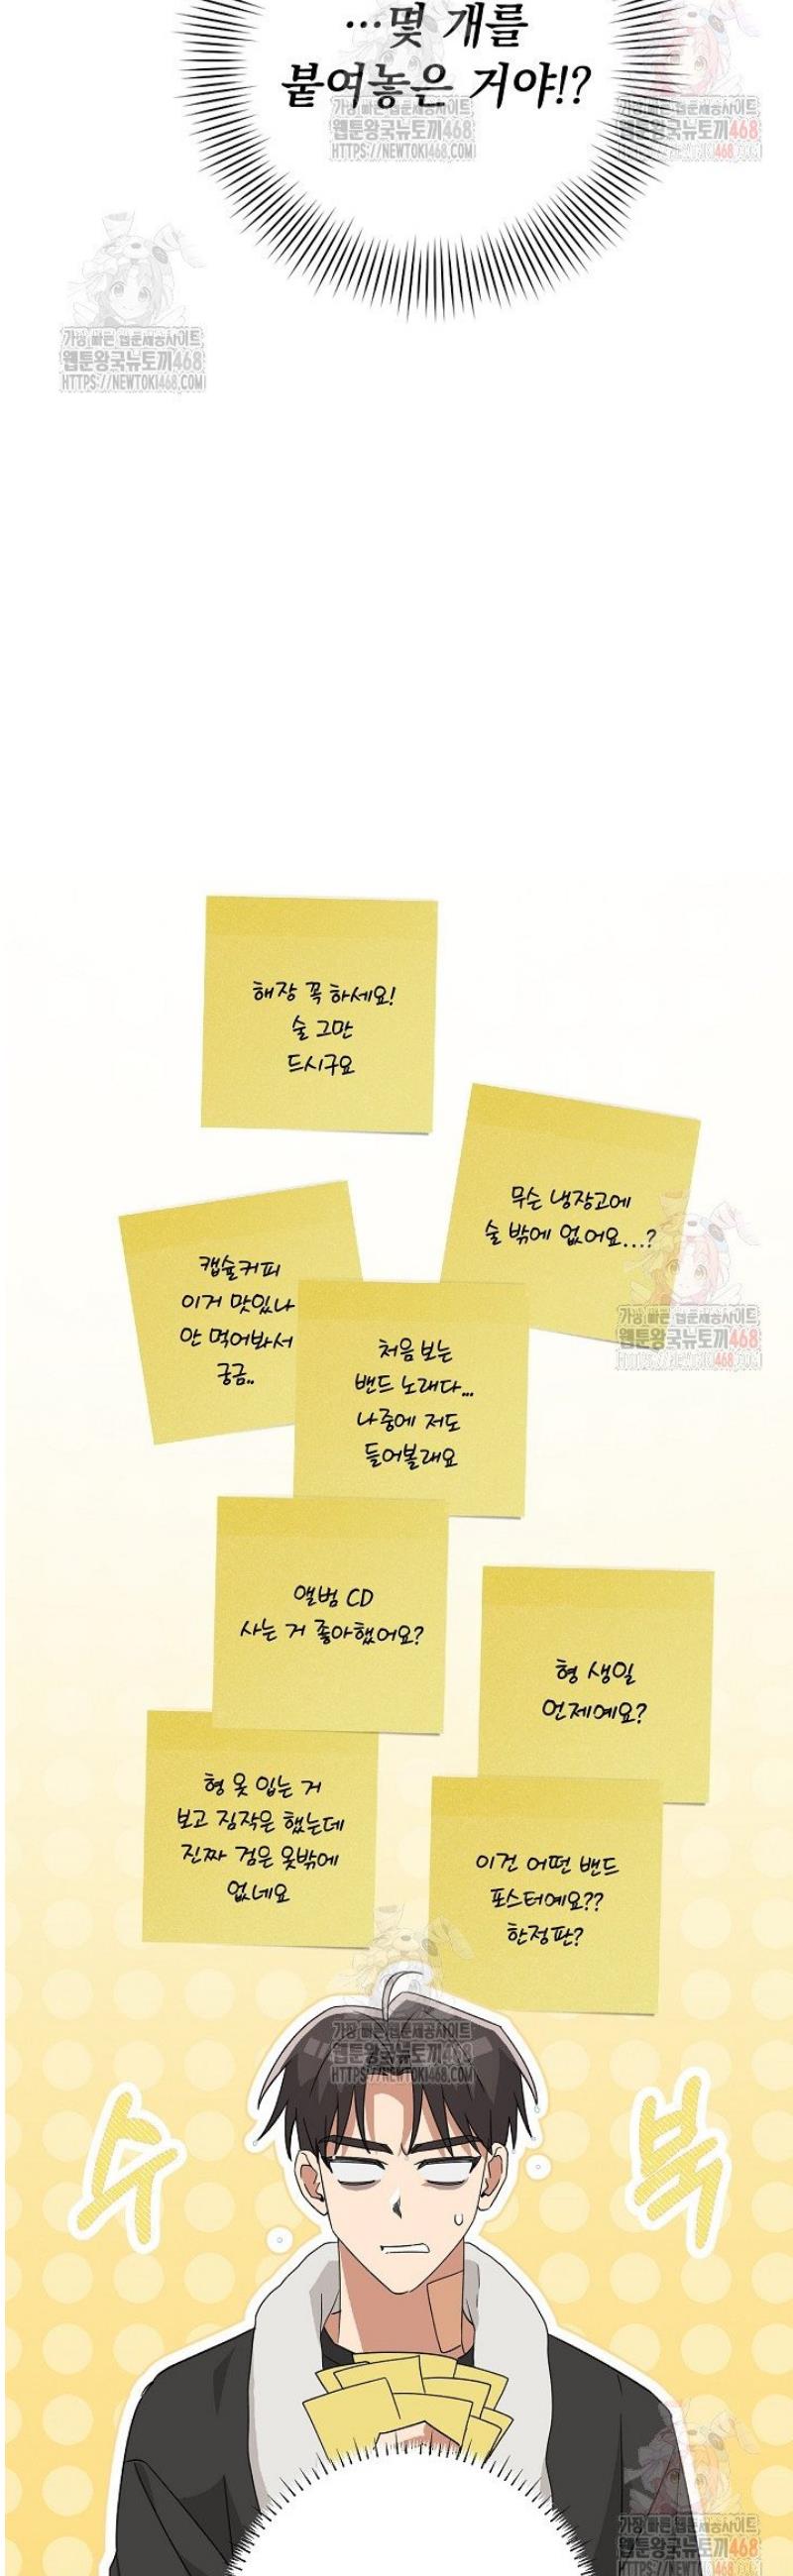 …몇 개를
붙여놓은 거야!?
가장 빠른 웹툰제공사이트
웹툰왕국뉴토끼468
HTTPS://NEWTOKI468.COM
가장 빠른 웹툰제공사이트
웹툰왕국뉴토끼468
가장 빠른 웹툰제공사이트
웹툰왕국뉴토끼468
HTTPS://NEWTOKI468.COM
해장 꼭 하세요!
술 그만
드시구요
무슨 냉장고에
술 밖에 없어요...?
가장 빠른 웹툰제공사이트
웹툰왕국뉴토끼468
캡슐커피
이거 맛있나
안 먹어봐서
궁금..
처음 보는
밴드 노래다...
나중에 저도
들어볼래요
앨범 CD
사는 거 좋아했어요?
형 생일
언제예요?
형 옷 입는 거
보고 짐작은 했는데
진짜 검은 옷밖에
없네요
이건 어떤 밴드
포스터예요??
한정판?
가장 빠른 웹툰제공사이트
웹툰왕국뉴토끼468
HTTPS://NEWTOKI468.COM
수
북
가장 빠른 웹툰제공사이트
웹툰왕국뉴토끼468